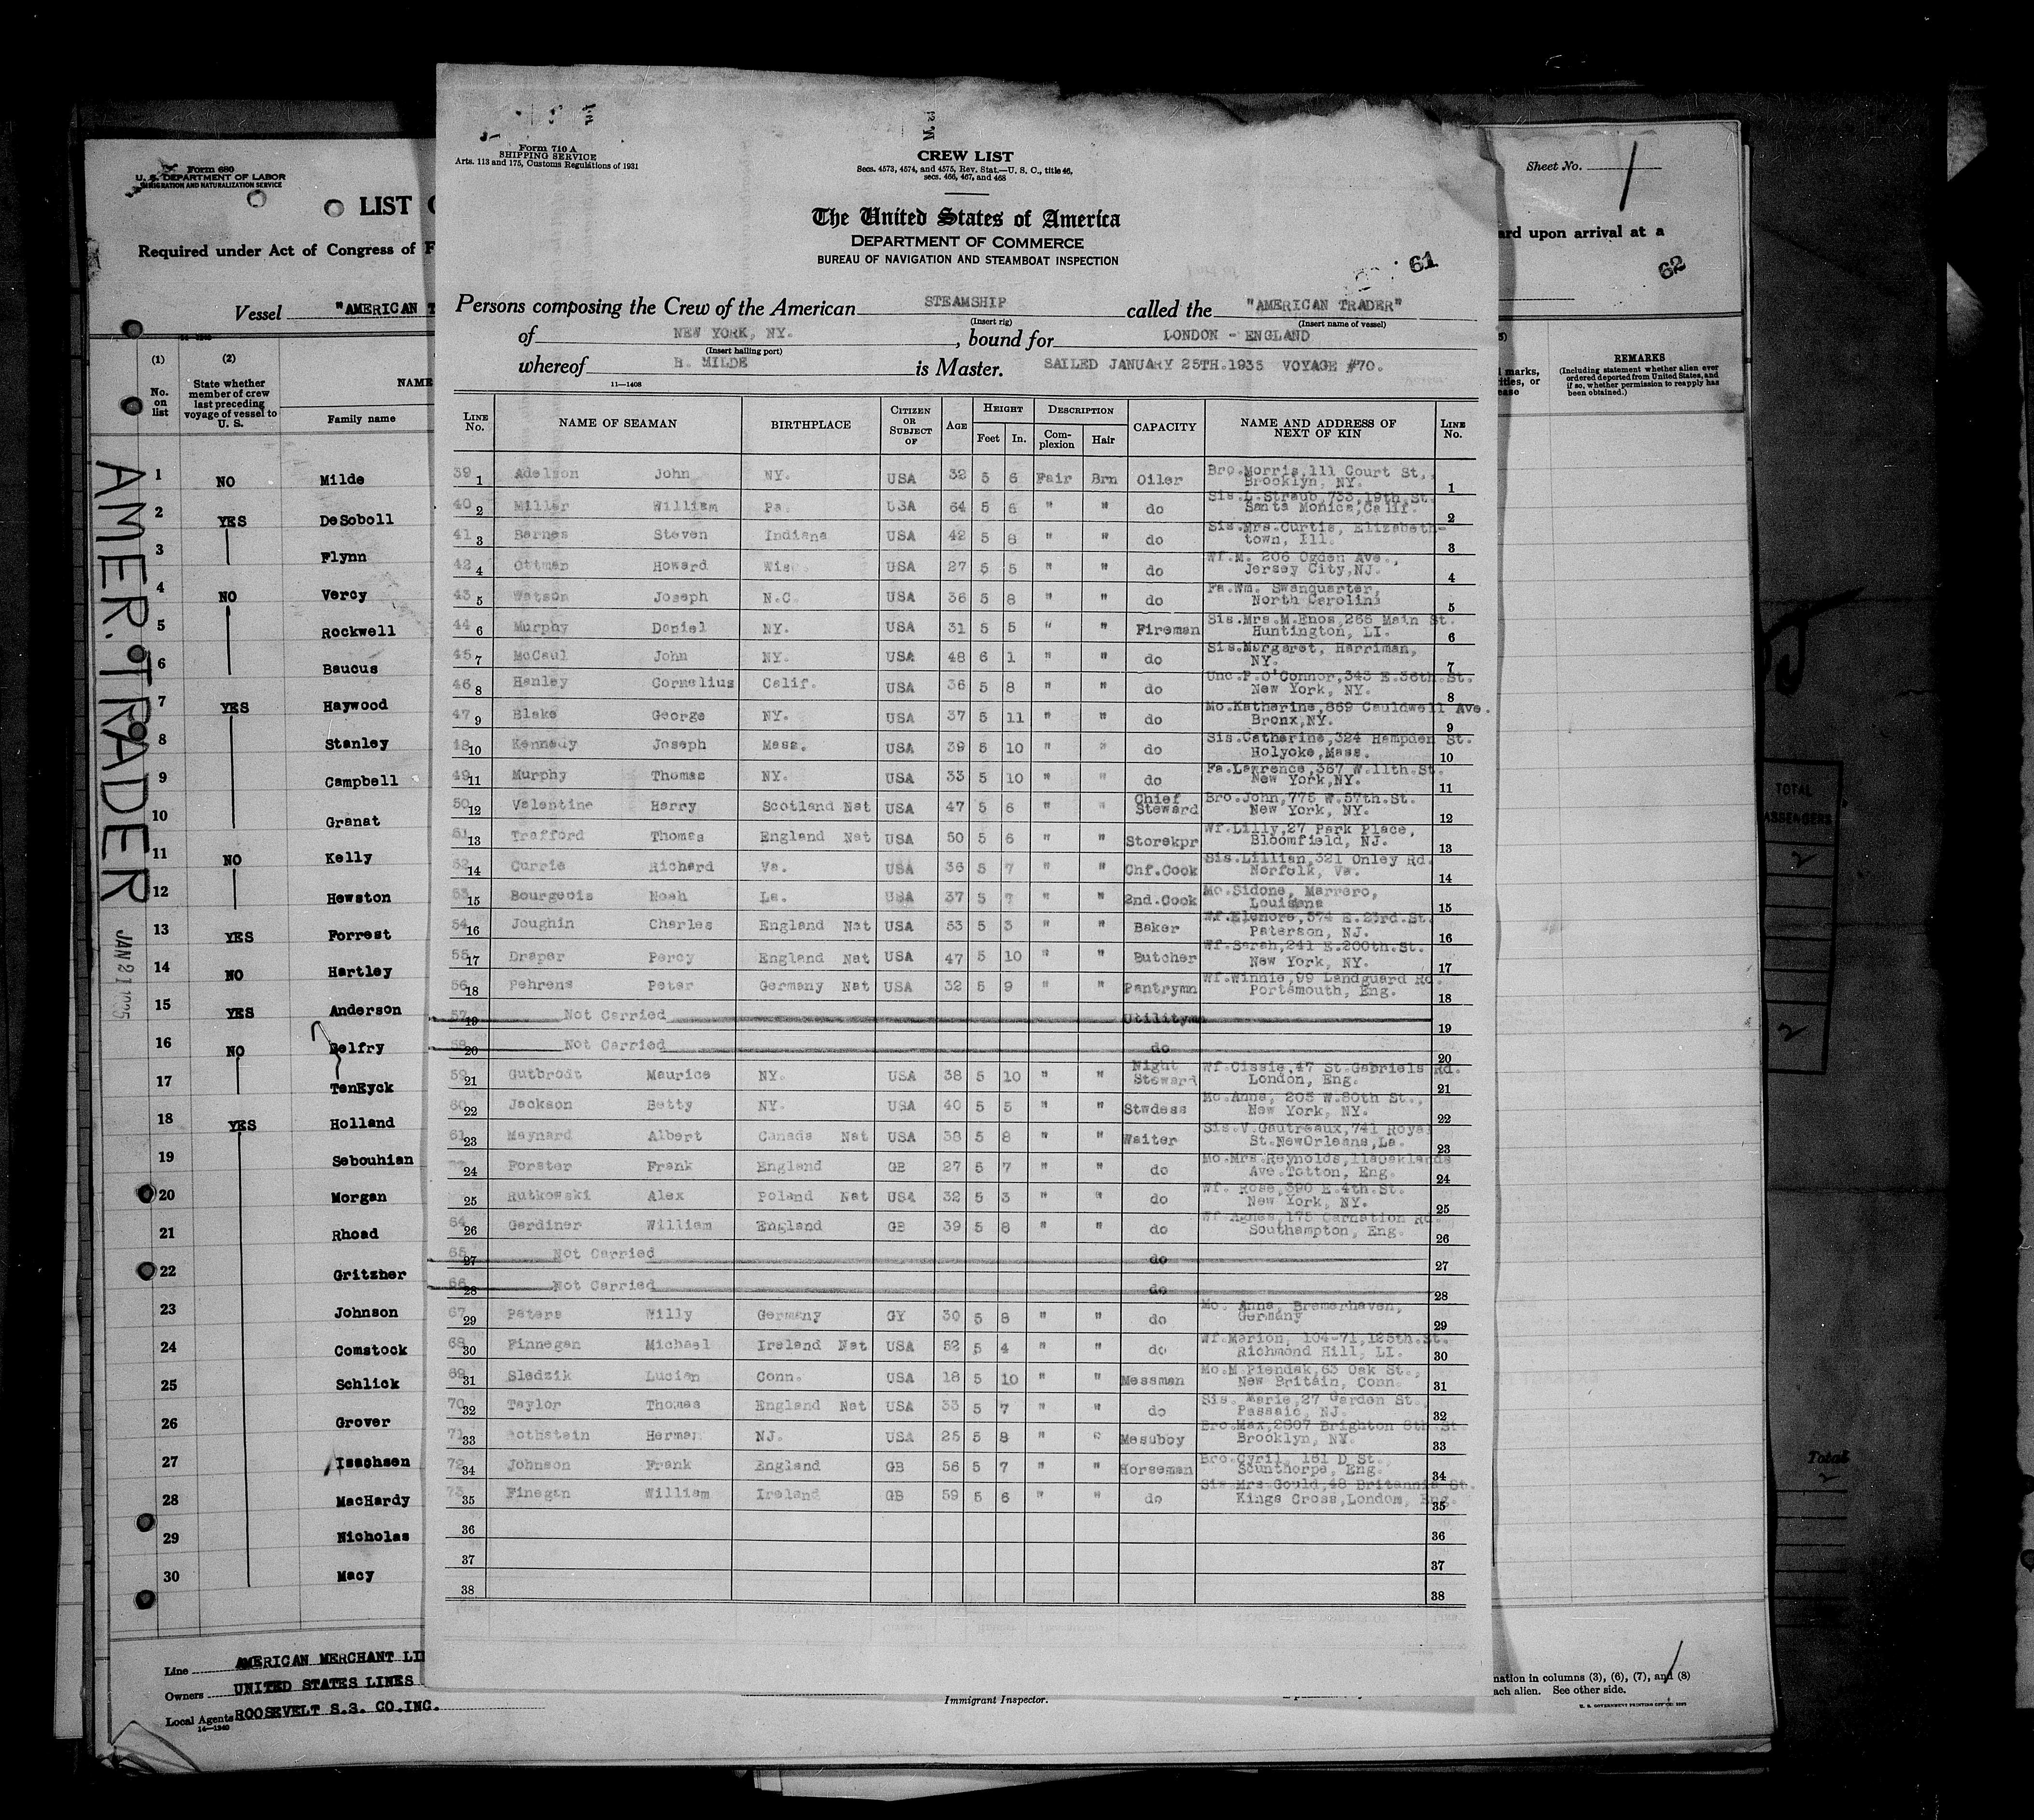 Form 710 A
SHIPPING SERVICE
Arts. 113 and 175, Customs Regulations of 1931
CREW LIST
Secs. 4573, 4574, and 4575, Rev. Stat.—U. S. C., title 46,
secs. 466, 467, and 468
The United States of America
DEPARTMENT OF COMMERCE
BUREAU OF NAVIGATION AND STEAMBOAT INSPECTION
61
Persons composing the Crew of the American STEAMSHIP called the "AMERICAN TRADER"
(Insert rig) (Insert name of vessel)
of NEW YORK, NY. , bound for LONDON - ENGLAND
(Insert hailing port)
whereof H. MILDE is Master. SAILED JANUARY 25TH.1935 VOYAGE #70.
11—1408
LINE No. NAME OF SEAMAN BIRTHPLACE CITIZEN OR SUBJECT OF AGE HEIGHT Feet In. DESCRIPTION Complexion Hair CAPACITY NAME AND ADDRESS OF NEXT OF KIN LINE No.
39 1 Adelson John NY. USA 32 5 6 Fair Brn Oiler Bro.Morris,111 Court St., Brooklyn, NY. 1
40 2 Miller William Pa. USA 64 5 6 " " do Sis.L.Straub,733,19th.St. Santa Monica,Calif. 2
41 3 Barnes Steven Indiana USA 42 5 8 " " do Sis.Mrs.Curtis, Elizabeth- town, Ill. 3
42 4 Ottman Howard Wis. USA 27 5 5 " " do Wf.M. 206 Ogden Ave., Jersey City,NJ. 4
43 5 Watson Joseph N.C. USA 36 5 8 " " do Fa.Wm. Swanquarter, North Carolina 5
44 6 Murphy Daniel NY. USA 31 5 5 " " Fireman Sis.Mrs.M.Enos,266 Main St. Huntington, LI. 6
45 7 McCaul John NY. USA 48 6 1 " " do Sis.Margaret, Harriman, NY. 7
46 8 Hanley Cornelius Calif. USA 36 5 8 " " do Unc.P.O'Connor,343 E.36th.St. New York, NY. 8
47 9 Blake George NY. USA 37 5 11 " " do Mo.Katherine,869 Cauldwell Ave. Bronx,NY. 9
48 10 Kennedy Joseph Mass. USA 39 5 10 " " do Sis.Catherine,324 Hampden St. Holyoke,Mass. 10
49 11 Murphy Thomas NY. USA 33 5 10 " " do Fa.Lawrence,367 W.11th.St. New York,NY. 11
50 12 Valentine Harry Scotland Nat USA 47 5 6 " " Chief Steward Bro.John,775 W.57th.St. New York, NY. 12
51 13 Trafford Thomas England Nat USA 50 5 6 " " Storekpr Wf.Lilly,27 Park Place, Bloomfield, NJ. 13
52 14 Currie Richard Va. USA 36 5 7 " " Chf.Cook Sis.Lillian,321 Onley Rd. Norfolk, Va. 14
53 15 Bourgeois Noah La. USA 37 5 7 " " 2nd.Cook Mo.Sidone, Marrero, Louisiana 15
54 16 Joughin Charles England Nat USA 53 5 3 " " Baker Wf.Elenore,574 E.23rd.St. Paterson, NJ. 16
55 17 Draper Percy England Nat USA 47 5 10 " " Butcher Wf.Sarah,241 E.200th.St. New York, NY. 17
56 18 Pehrens Peter Germany Nat USA 32 5 9 " " Pantrymn Wf.Winnie,99 Landguard Rd. Portsmouth, Eng. 18
57 19 Not Carried Utilitymn 19
58 20 Not Carried do 20
59 21 Gutbrodt Maurice NY. USA 38 5 10 " " Night Steward Wf.Cissie,47 St.Gabriels Rd. London, Eng. 21
60 22 Jackson Betty NY. USA 40 5 5 " " Stwdess Mo.Anna, 205 W.80th St., New York, NY. 22
61 23 Maynard Albert Canada Nat USA 38 5 8 " " Waiter Sis.V.Gautreaux,741 Royal St.NewOrleans,La. 23
24 Forster Frank England GB 27 5 7 " " do Mo.Mrs.Reynolds,11aoaklands Ave.Totton, Eng. 24
25 Rutkowski Alex Poland Nat USA 32 5 3 " " do Wf. Rose,390 E.4th.St. New York, NY. 25
64 26 Gardiner William England GB 39 5 8 " " do Wf Agnes,175 Carnation Rd. Southampton, Eng. 26
65 27 Not Carried do 27
66 28 Not Carried do 28
67 29 Peters Willy Germany GY 30 5 8 " " do Mo. Anna, Bremerhaven, Germany 29
68 30 Finnegan Michael Ireland Nat USA 52 5 4 " " do Wf.Marion, 104-71,125th.St. Richmond Hill, LI. 30
69 31 Sledzik Lucian Conn. USA 18 5 10 " " Messman Mo.M.Piendak,63 Oak St., New Britain, Conn. 31
70 32 Taylor Thomas England Nat USA 33 5 7 " " do Sis. Marie,27 Garden St., Passaic, NJ. 32
71 33 Rothstein Herman NJ. USA 25 5 8 " " Mesuboy Bro.Max,2607 Brighton 8th St. Brooklyn, NY. 33
72 34 Johnson Frank England GB 56 5 7 " " Horseman Bro.Cyril, 161 D St., Scunthorpe, Eng. 34
73 35 Finegan William Ireland GB 59 5 6 " " do Sis Mrs Gould,48 Britannia St. Kings Cross,London, Eng. 35
36 36
37 37
38 38
Form 680
U. S. DEPARTMENT OF LABOR
IMMIGRATION AND NATURALIZATION SERVICE
LIST
Required under Act of Congress of F
Vessel "AMERICAN T
14—1240
(1) (2)
No. on list State whether member of crew last preceding voyage of vessel to U. S. NAME
Family name
1 NO Milde
2 YES DeSoboll
3 Flynn
4 NO Vercy
5 Rockwell
6 Baucus
7 YES Haywood
8 Stanley
9 Campbell
10 Granat
11 NO Kelly
12 Hewston
13 YES Forrest
14 NO Hartley
15 YES Anderson
16 NO Belfry
17 TenEyck
18 YES Holland
19 Sebouhian
20 Morgan
21 Rhoad
22 Gritzher
23 Johnson
24 Comstock
25 Schlick
26 Grover
27 Isachsen
28 MacHardy
29 Nicholas
30 Macy
AMER. TRADER
JAN 21 1935
Line AMERICAN MERCHANT LI
Owners UNITED STATES LINES
Local Agents ROOSEVELT S.S. CO.INC.
14—1240
Immigrant Inspector.
Sheet No. 1
ard upon arrival at a
62
marks,
ities, or
ease
REMARKS
(Including statement whether alien ever ordered deported from United States, and if so, whether permission to reapply has been obtained.)
TOTAL
PASSENGERS
2
2
Total
2
nation in columns (3), (6), (7), and (8)
ach alien. See other side.
U. S. GOVERNMENT PRINTING OFFICE